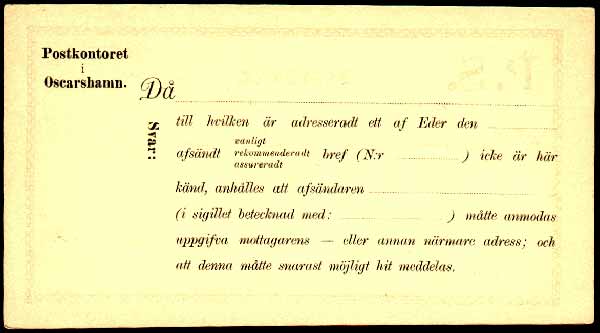 Postkontoret
i
Oscarshamn.
Då
Svar:
till hvilken är adresseradt ett af Eder den
afsändt vanligt rekommenderadt assureradt bref (N:r ) icke är här
känd, anhålles att afsändaren
(i sigillet betecknad med: ) måtte anmodas
uppgifva mottagarens — eller annan närmare adress; och
att denna måtte snarast möjligt hit meddelas.